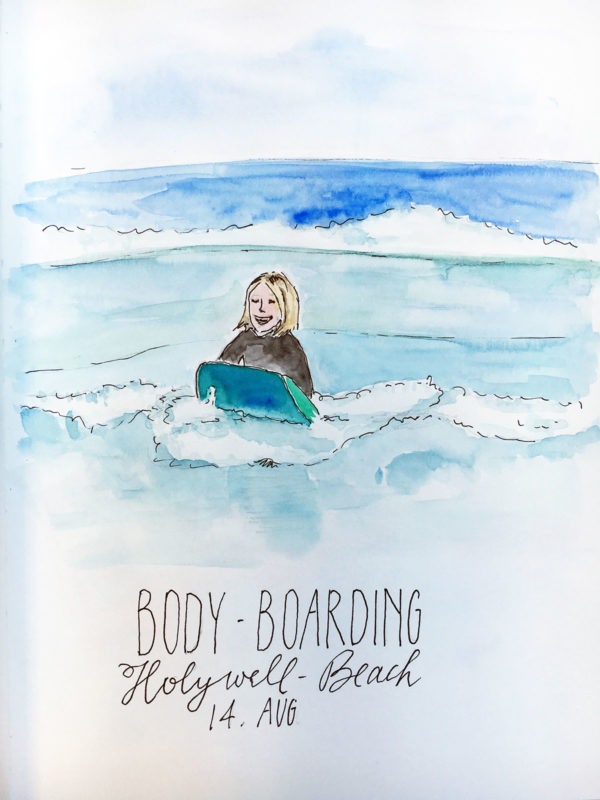 BODY-BOARDING
Holywell-Beach
14. AUG